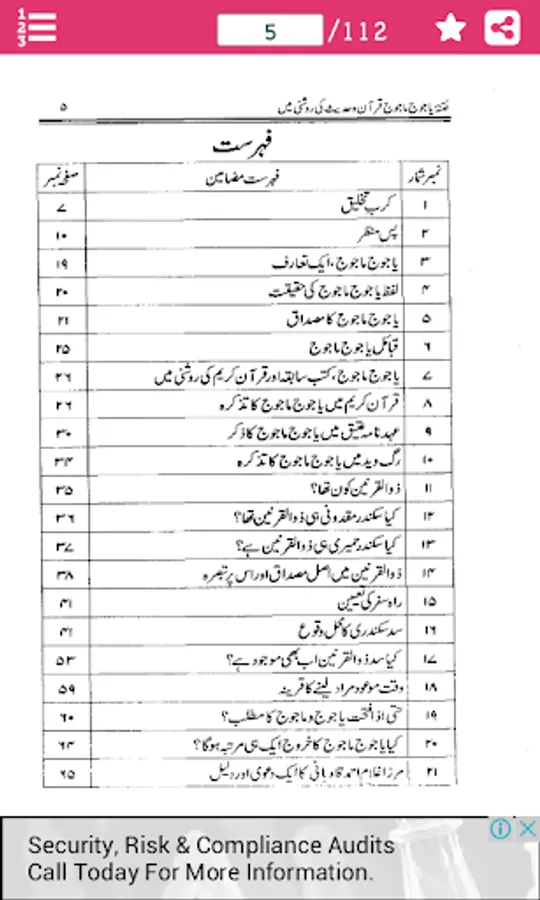 1
2
3
5 /112
فتنۂ یاجوج ماجوج قرآن وحدیث کی روشنی میں ۵
فہرست
نمبر شمار فہرست مضامین صفحہ نمبر
۱ کرب تخلیق ۷
۲ پس منظر ۱۰
۳ یاجوج ماجوج، ایک تعارف ۱۹
۴ لفظ یاجوج ماجوج کی حقیقت ۲۰
۵ یاجوج ماجوج کا مصداق ۲۱
۶ قبائل یاجوج ماجوج ۲۵
۷ یاجوج ماجوج، کتب سابقہ اور قرآن کریم کی روشنی میں ۲۶
۸ قرآن کریم میں یاجوج ماجوج کا تذکرہ ۲۶
۹ عہد نامہ عتیق میں یاجوج ماجوج کا ذکر ۳۰
۱۰ رگ وید میں یاجوج ماجوج کا تذکرہ ۳۴
۱۱ ذوالقرنین کون تھا؟ ۳۵
۱۲ کیا سکندر مقدونی ہی ذوالقرنین تھا؟ ۳۶
۱۳ کیا سکندر حمیری ہی ذوالقرنین ہے؟ ۳۷
۱۴ ذوالقرنین میں اصل مصداق اور اس پر تبصرہ ۳۸
۱۵ راہ سفر کی تعیین ۴۱
۱۶ سد سکندری کا محل وقوع ۴۱
۱۷ کیا سد ذوالقرنین اب بھی موجود ہے؟ ۵۳
۱۸ وقت موعود مراد لینے کا قرینہ ۵۹
۱۹ حتی اذا فتحت یاجوج وماجوج کا مطلب؟ ۶۰
۲۰ کیا یاجوج ماجوج کا خروج ایک ہی مرتبہ ہوگا؟ ۶۴
۲۱ مرزا غلام احمد قادیانی کا ایک دعوی اور دلیل ۶۵
Security, Risk & Compliance Audits
Call Today For More Information.